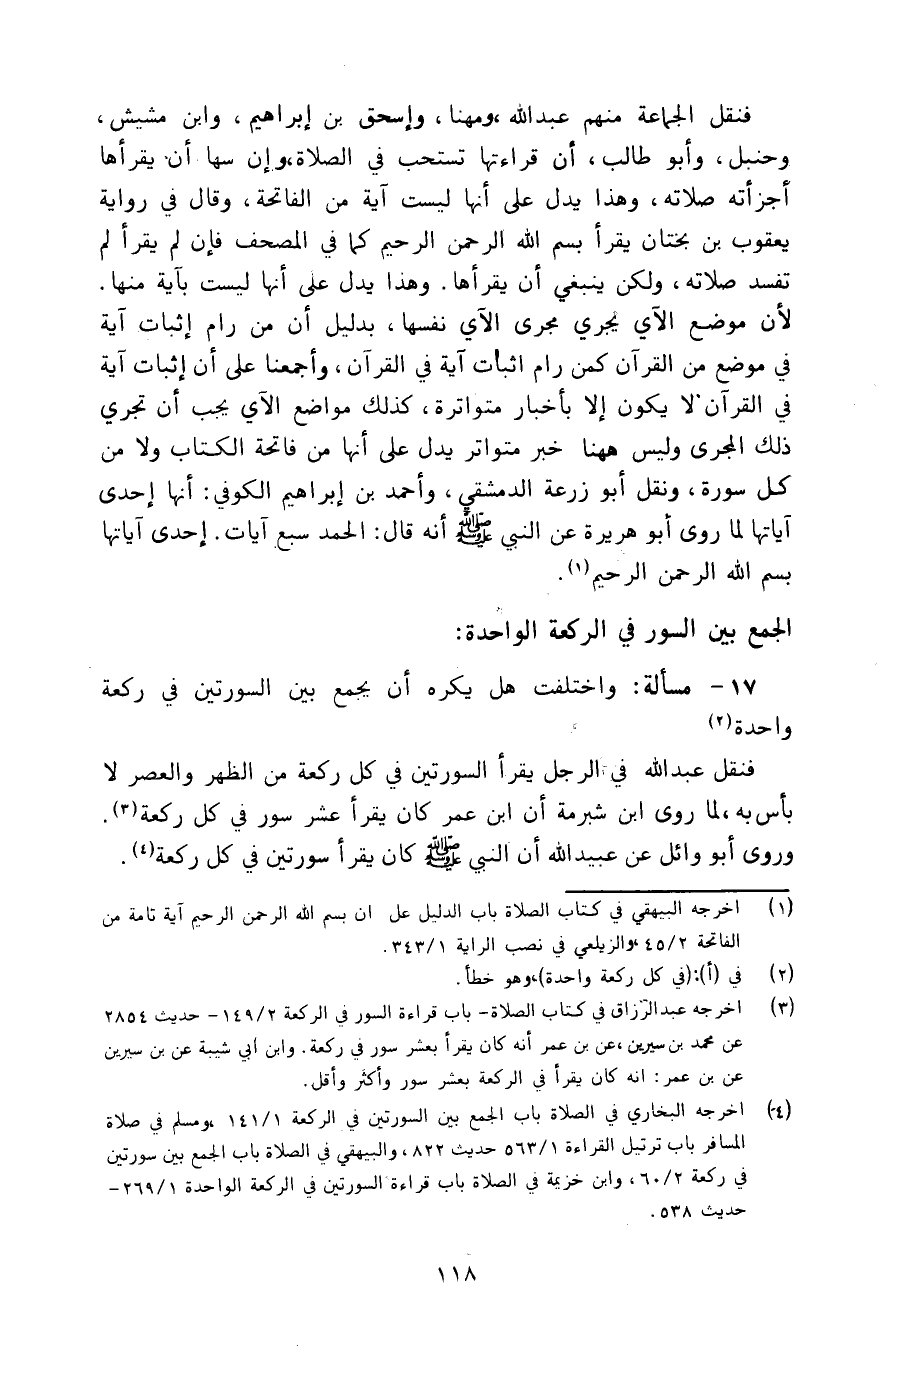 فنقل الجماعة منهم عبدالله ،ومهنا ، وإسحق بن إبراهيم ، وابن مشيش ،
وحنبل ، وأبو طالب ، أن قراءتها تستحب في الصلاة ،وإن سها أن يقرأها
أجزأته صلاته ، وهذا يدل على أنها ليست آية من الفاتحة ، وقال في رواية
يعقوب بن بختان يقرأ بسم الله الرحمن الرحيم كما في المصحف فإن لم يقرأ لم
تفسد صلاته ، ولكن ينبغي أن يقرأها . وهذا يدل على أنها ليست بآية منها .
لأن موضع الآي يجري مجرى الآي نفسها ، بدليل أن من رام إثبات آية
في موضع من القرآن كمن رام اثبات آية في القرآن ، وأجمعنا على أن إثبات آية
في القرآن لا يكون إلا بأخبار متواترة ، كذلك مواضع الآي يجب أن تجري
ذلك المجرى وليس ههنا خبر متواتر يدل على أنها من فاتحة الكتاب ولا من
كل سورة ، ونقل أبو زرعة الدمشقي ، وأحمد بن إبراهيم الكوفي : أنها إحدى
آياتها لما روى أبو هريرة عن النبي ﷺ أنه قال : الحمد سبع آيات . إحدى آياتها
بسم الله الرحمن الرحيم(١) .
الجمع بين السور في الركعة الواحدة :
١٧ - مسألة : واختلفت هل يكره أن يجمع بين السورتين في ركعة
واحدة(٢)
فنقل عبدالله في الرجل يقرأ السورتين في كل ركعة من الظهر والعصر لا
بأس به ،لما روى ابن شبرمة أن ابن عمر كان يقرأ عشر سور في كل ركعة(٣) .
وروى أبو وائل عن عبيدالله أن النبي ﷺ كان يقرأ سورتين في كل ركعة(٤) .
(١) اخرجه البيهقي في كتاب الصلاة باب الدليل عل ان بسم الله الرحمن الرحيم آية تامة من
الفاتحة ٤٥/٢ ،والزيلعي في نصب الراية ٣٤٣/١ .
(٢) في (أ):(في كل ركعة واحدة)،وهو خطأ .
(٣) اخرجه عبدالرزاق في كتاب الصلاة - باب قراءة السور في الركعة ١٤٩/٢ - حديث ٢٨٥٤
عن محمد بن سيرين ،عن بن عمر أنه كان يقرأ بعشر سور في ركعة . وابن أبي شيبة عن بن سيرين
عن بن عمر : انه كان يقرأ في الركعة بعشر سور وأكثر وأقل .
(٤) اخرجه البخاري في الصلاة باب الجمع بين السورتين في الركعة ١٤١/١ ،ومسلم في صلاة
المسافر باب ترتيل القراءة ٥٦٣/١ حديث ٨٢٢ ، والبيهقي في الصلاة باب الجمع بين سورتين
في ركعة ٦٠/٢ ، وابن خزيمة في الصلاة باب قراءة السورتين في الركعة الواحدة ٢٦٩/١ -
حديث ٥٣٨ .
١١٨